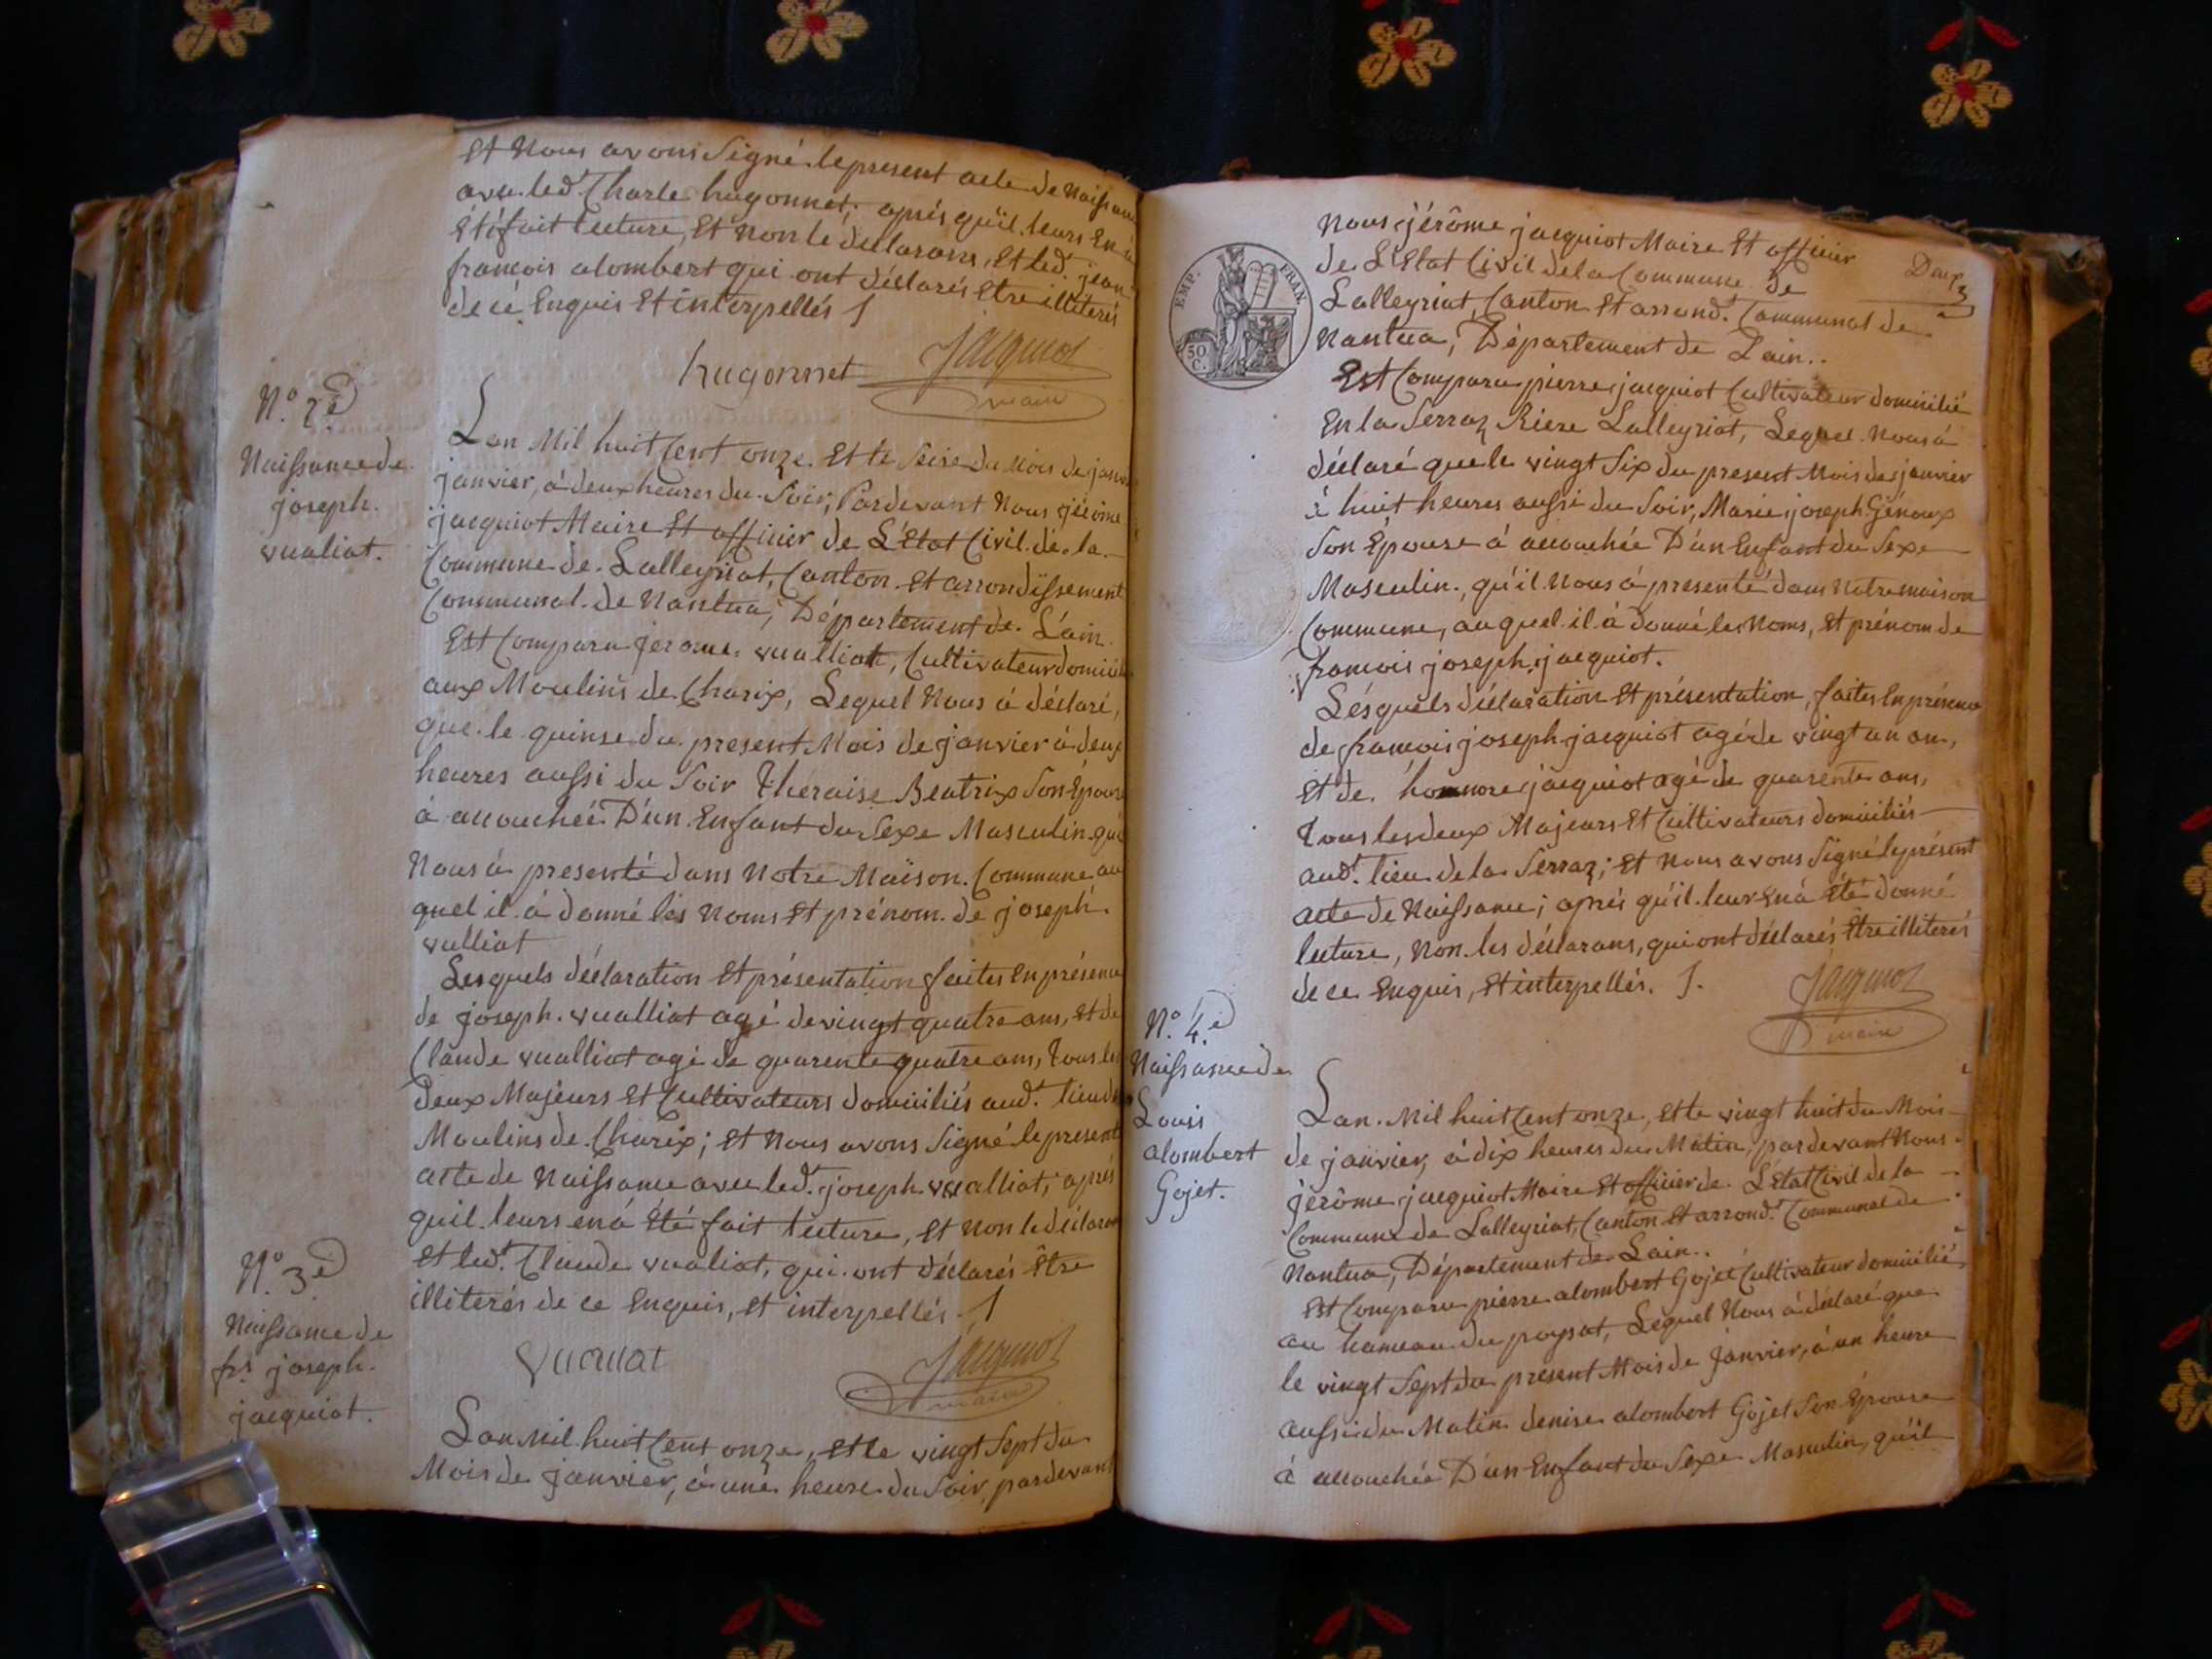 Et Nous avons Signé le present acte de Naissance
avec led.t Charle hugonnet; aprés qu'il leurs En à
Été fait lecture, Et Non le declarans, Et led.t jean
francois alombert qui ont déclarés Etre illiterés
de cé Enquis Et interpellés
hugonnet
Jacquiot
maire
N.o 2.e
Naissance de
joseph.
vualiat.
Lan Mil huit Cent onze. Et le Seise du Mois de janv
janvier, à deux heures du Soir, Pardevant Nous jérome
jacquiot Maire Et officier de L'Etat Civil de la
Commune de Lalleyriat, Canton Et arrondissement
Communal de Nantua, Département de L'ain.
Est Comparu jerome vualliat, Cultivateur domicilié
aux Moulins de Charix, Lequel Nous à déclaré,
que le quinse du present Mois de janvier à deux
heures aussi du Soir Theraise Beatrix Son Épouse
à accouchée D'un Enfant du Sexe Masculin qu'il
Nous à presenté dans Notre Maison Commune au
quel il à donné les Noms Et prénom de joseph
vulliat
Lesquels déclaration Et présentation faites En présence
de joseph vualliat agé de vingt quatre ans, Et de
Claude vualliat agé de quarente quatre ans, Tous les
deux Majeurs Et Cultivateurs domiciliés aud.t lieu de
Moulins de Charix; Et Nous avons Signé le present
acte de Naissance avec led.t joseph vualliat; aprés
quil leurs en à Eté fait lecture, Et Non le déclarant
Et led.t Claude vualiat, qui ont déclarés Être
illiterés de ce Enquis, Et interpellés.
Vuaillat
Jacquiot
maire
N.o 3.e
Naissance de
frs joseph.
jacquiot.
Lan Mil huit Cent onze, Et le vingt Sept du
Mois de janvier, à une heure du Soir, pardevant
Deux
EMP. FRAN.
50
C.
Nous jérôme jacquiot Maire Et officier
de L'Etat Civil de la Commune de
Lalleyriat, Canton Et arrond.t Communal de
Nantua, Département de Lain..
Est Comparu pierre jacquiot Cultivateur domicilié
En la Serraz Riere Lalleyriat, Lequel Nous à
déclaré que le vingt Six du present Mois de janvier
à huit heures aussi du Soir, Marie joseph Génoux
Son Épouse à accouchée D'un Enfant du Sexe
Masculin, qu'il Nous à presenté dans Notre maison
Commune, auquel il à donné les Noms, Et prénom de
francois joseph jacquiot.
Lésquels déclaration Et présentation, faites En présence
de francois joseph jacquiot agé de vingt un ans,
Et de honnore jacquiot agé de quarente ans,
Tous les deux Majeurs Et Cultivateurs domiciliés
aud.t lieu de la Serraz; Et Nous avons Signé le présent
acte de Naissance; aprés qu'il leur En à Été donné
lecture, Non les déclarans, qui ont déclarés Être illiterés
de ce Enquis, Et interpellés.
Jacquiot
maire
N.o 4.e
Naissance de
Louis
alombert
Gojet.
Lan Mil huit Cent onze, Et le vingt huit du Mois
de janvier, à dix heures du Matin, pardevant Nous
jerôme jacquiot Maire Et officier de L'Etat Civil de la
Commune de Lalleyriat, Canton Et arrond.t Communal de
Nantua, Département de Lain..
Est Comparu pierre alombert Gojet Cultivateur domicilié
au hameau du poysat, Lequel Nous à déclaré que
le vingt Sept du present Mois de janvier, à un heure
aussi du Matin denise alombert Gojet Son Épouse
à accouchée D'un Enfant du Sexe Masculin, qu'il